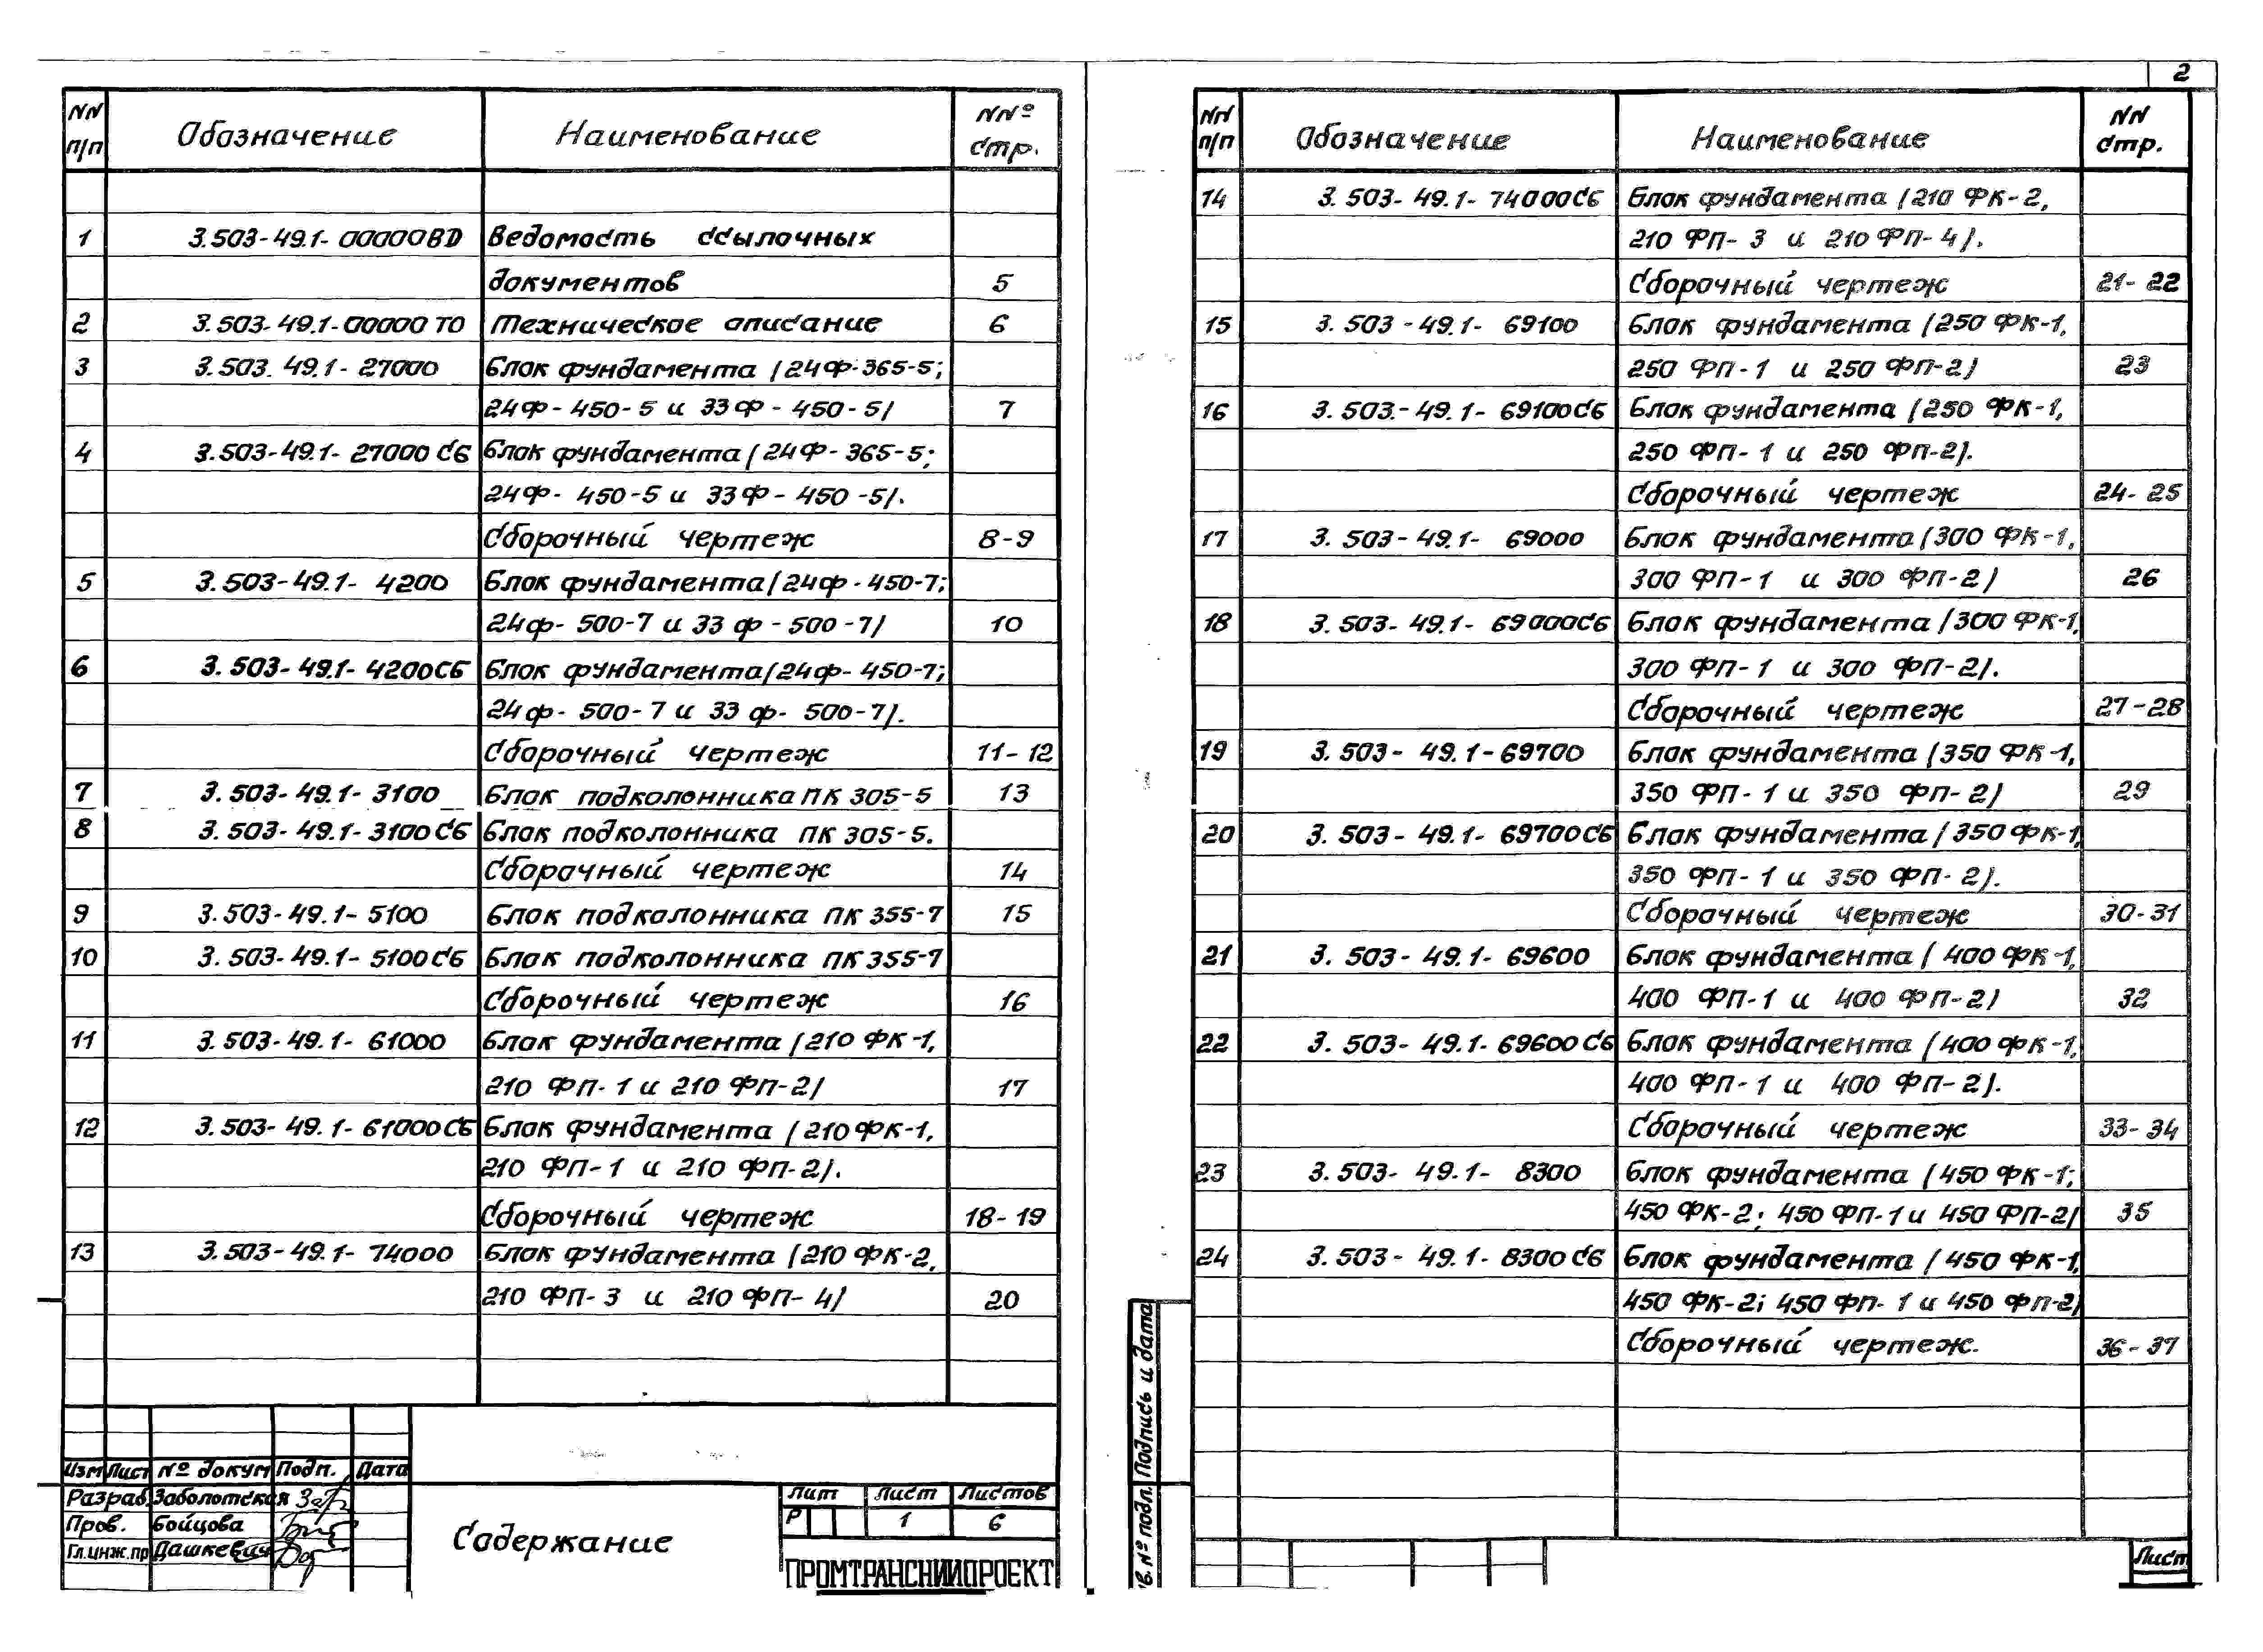 2
NN п/п Обозначение Наименование NNº стр.
1 3.503-49.1-00000ВД Ведомость ссылочных
документов 5
2 3.503-49.1-00000 ТО Техническое описание 6
3 3.503. 49.1- 27000 Блок фундамента (24Ф-365-5;
24Ф-450-5 и 33Ф-450-5) 7
4 3.503-49.1-27000 СБ Блок фундамента (24Ф-365-5;
24Ф-450-5 и 33Ф-450-5).
Сборочный чертеж 8-9
5 3.503-49.1-4200 Блок фундамента (24Ф-450-7;
24Ф-500-7 и 33Ф-500-7) 10
6 3.503-49.1-4200СБ Блок фундамента (24Ф-450-7;
24Ф-500-7 и 33Ф-500-7).
Сборочный чертеж 11-12
7 3.503-49.1-3100 Блок подколонника ПК 305-5 13
8 3.503-49.1-3100СБ Блок подколонника ПК 305-5.
Сборочный чертеж 14
9 3.503-49.1-5100 Блок подколонника ПК 355-7 15
10 3.503-49.1-5100СБ Блок подколонника ПК 355-7
Сборочный чертеж 16
11 3.503-49.1-61000 Блок фундамента (210 ФК-1,
210 ФП-1 и 210 ФП-2) 17
12 3.503-49.1-61000СБ Блок фундамента (210 ФК-1,
210 ФП-1 и 210 ФП-2).
Сборочный чертеж 18-19
13 3.503-49.1-74000 Блок фундамента (210 ФК-2,
210 ФП-3 и 210 ФП-4) 20
Изм Лист № докум Подп. Дата
Разраб. Заболотская
Пров. Бойцова
Гл.инж.пр Дашкевич
Содержание
Лит Лист Листов
Р 1 6
ПРОМТРАНСНИИПРОЕКТ
NN п/п Обозначение Наименование NN стр.
14 3.503-49.1-74000СБ Блок фундамента (210 ФК-2,
210 ФП-3 и 210 ФП-4).
Сборочный чертеж 21-22
15 3.503-49.1-69100 Блок фундамента (250 ФК-1,
250 ФП-1 и 250 ФП-2) 23
16 3.503.-49.1-69100СБ Блок фундамента (250 ФК-1,
250 ФП-1 и 250 ФП-2).
Сборочный чертеж 24-25
17 3.503-49.1-69000 Блок фундамента (300 ФК-1,
300 ФП-1 и 300 ФП-2) 26
18 3.503-49.1-69000СБ Блок фундамента (300 ФК-1,
300 ФП-1 и 300 ФП-2).
Сборочный чертеж 27-28
19 3.503-49.1-69700 Блок фундамента (350 ФК-1,
350 ФП-1 и 350 ФП-2) 29
20 3.503-49.1-69700СБ Блок фундамента (350 ФК-1,
350 ФП-1 и 350 ФП-2).
Сборочный чертеж 30-31
21 3.503-49.1-69600 Блок фундамента (400 ФК-1,
400 ФП-1 и 400 ФП-2) 32
22 3.503-49.1-69600СБ Блок фундамента (400 ФК-1,
400 ФП-1 и 400 ФП-2).
Сборочный чертеж 33-34
23 3.503-49.1-8300 Блок фундамента (450 ФК-1;
450 ФК-2; 450 ФП-1 и 450 ФП-2) 35
24 3.503-49.1-8300СБ Блок фундамента (450 ФК-1,
450 ФК-2; 450 ФП-1 и 450 ФП-2)
Сборочный чертеж. 36-37
Подпись и дата
в. № подл.
Лист